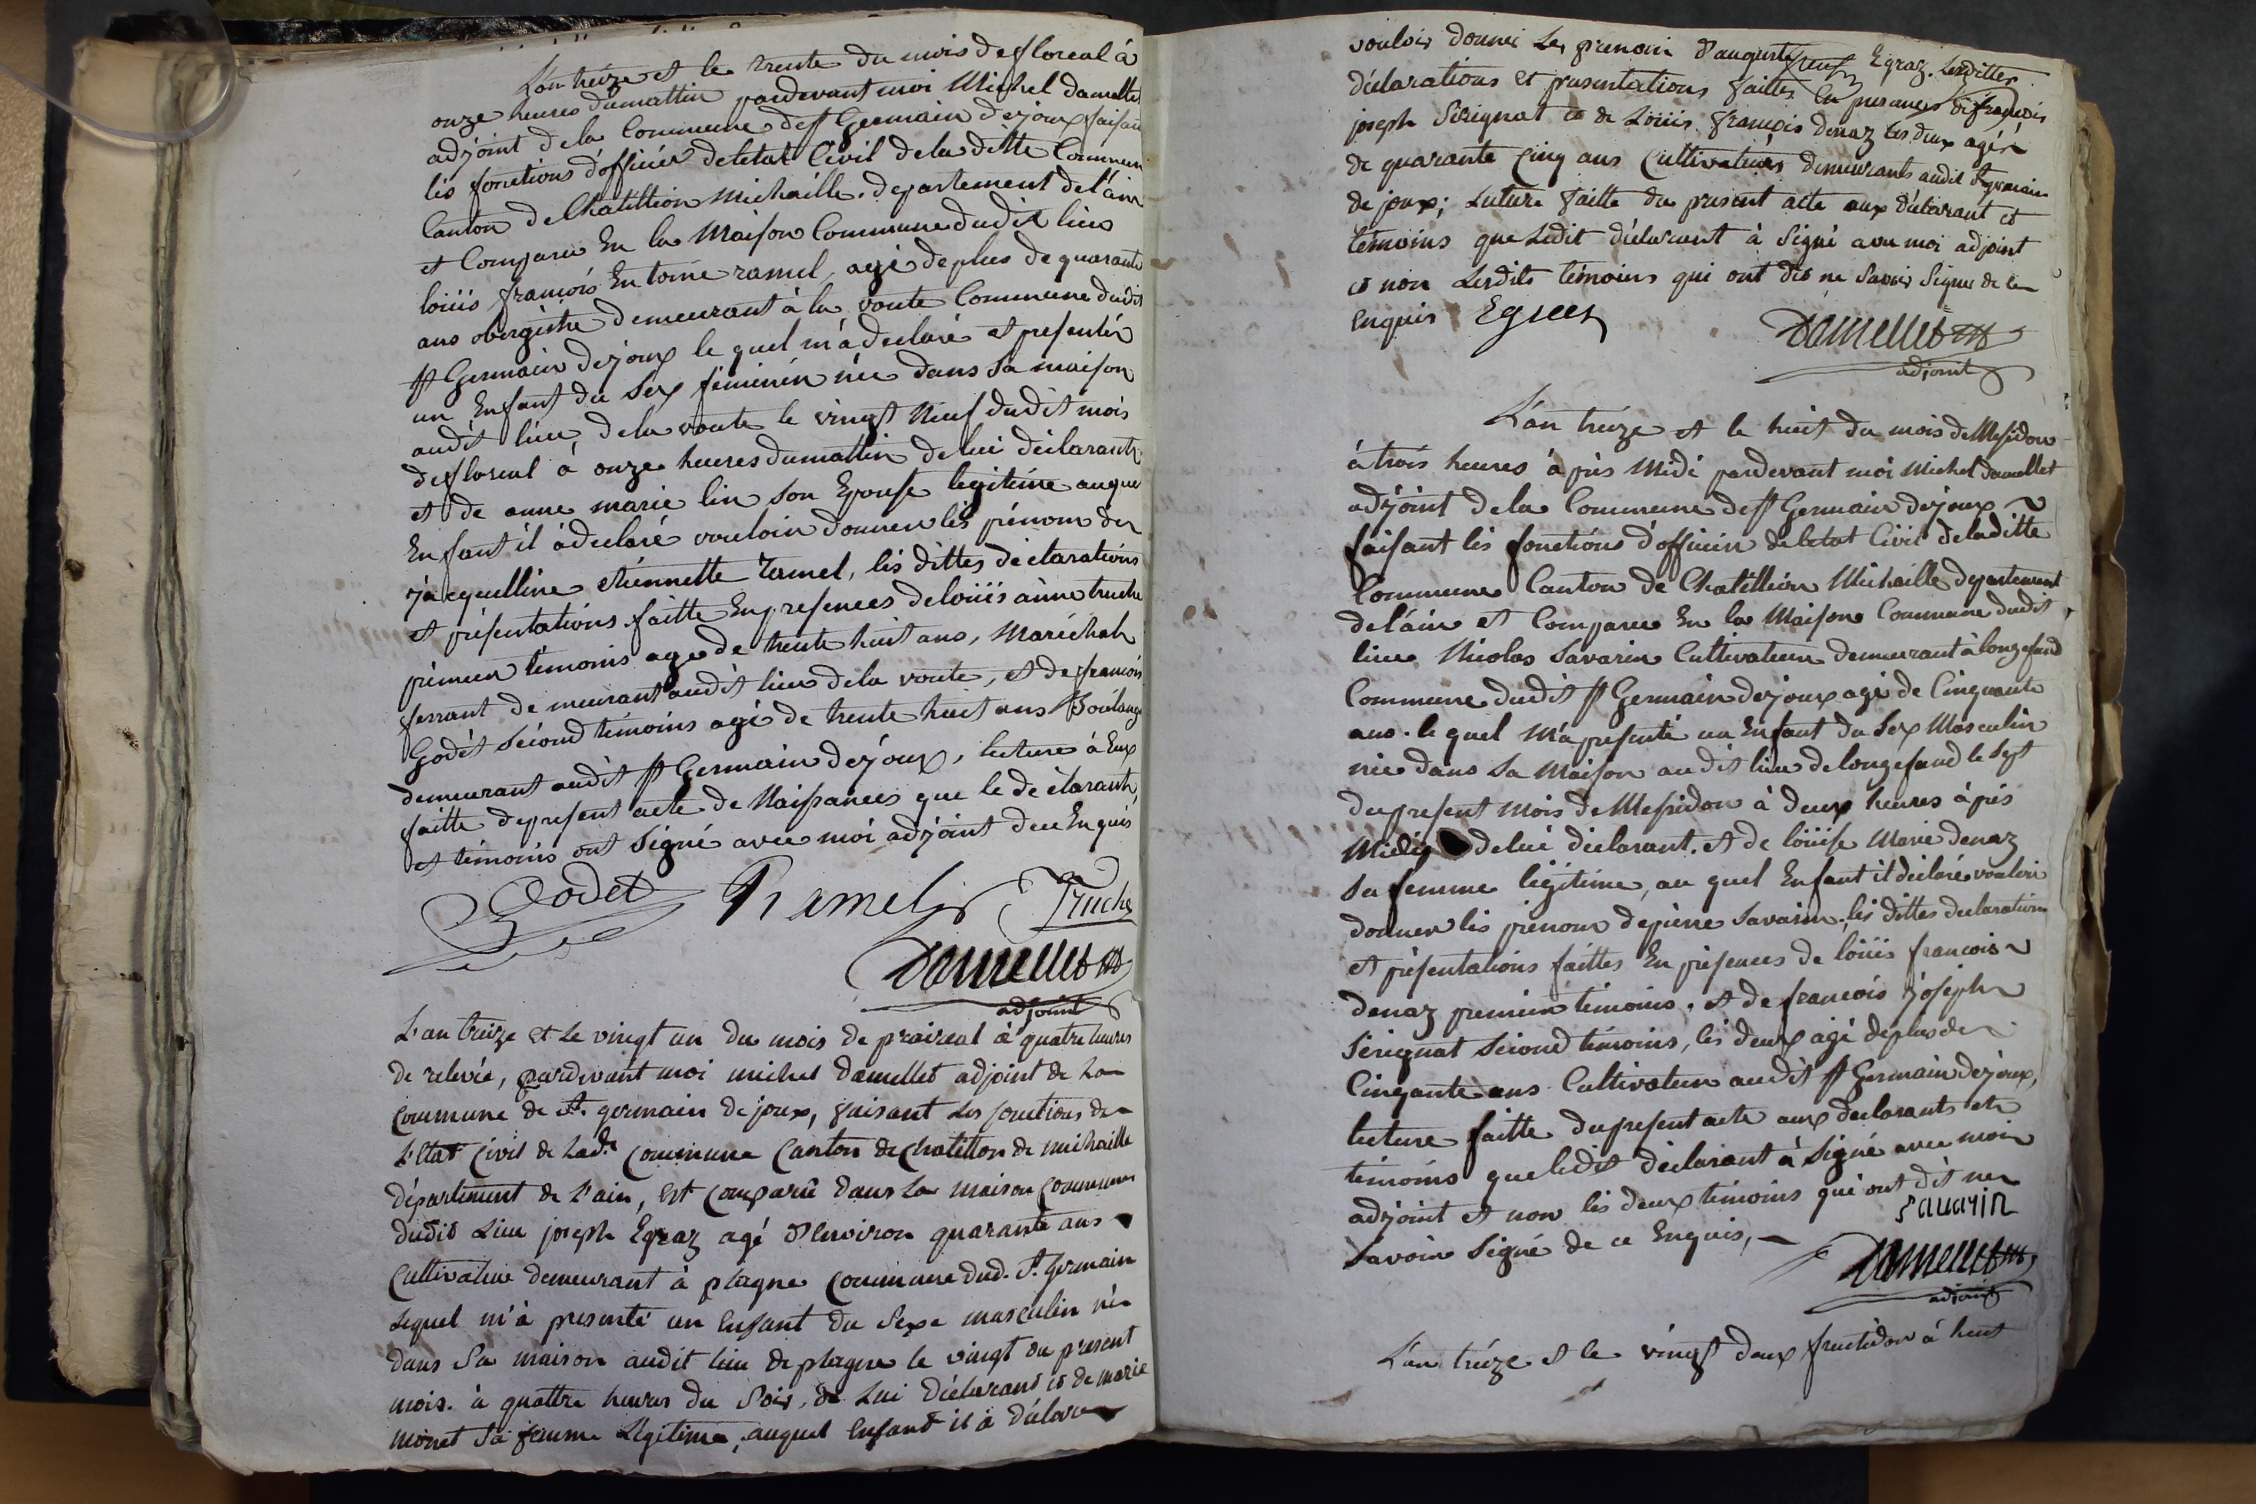 L'an treize et le trente du mois de floreal à
onze heures dumattin pardevant moi Michel Damellet
adjoint dela Commune de St Germain dejoux faisant
lis fonctions d'officier deletat Civil dela ditte Commune
Canton de Chatillion Michaille. departement de l'ain
et Comparu En la Maison Commune dudit lieu
loüis françois Entoine ramel, agé deplus de quarante
ans obergiste demeurant à la voute Commune dudit
St Germain dejoux le quel m'a declaré et presentér
un Enfant du Sex feminin née dans Sa maison
audit lieu dela voute le vingt Neuf dudit mois
defloreal à onze heures dumattin de lui déclarant
et de anne marie lin son Epouse legitime auquel
Enfant il à declaré vouloir donner lis prénom der
jacquelline etiennette ramel, lis dittes déclarations
et présentations faitte En presences de loüis aimé truche
premier témoins agé de trente huit ans, Maréchale
ferrant demeurant audit lieu dela voute, et de françois
Godet Second témoins agé de trente huit ans Boulanger
demeurant audit St Germain dejoux, lecture à Eux
faitte depresent acte de Naissances que le déclarant,
et témoins ont Signé avec moi adjoint dece Enquis
Godet Ramel Truche
Damellet
adjoint
L'an treize et Le vingt un du mois de praireal à quatre heures
de relevée, pardevant moi michel damellet adjoint de La
commune de St. germain de joux, faisant Les fonctions de
L'Etat Civil de Lad.e commune Canton de Chatillon de michaille
département de L'ain, Est comparû dans La maison commune
dudit Lieu joseph Egraz agé d'Environ quarante ans
Cultivateur demeurant à plagne commune dud. St. Germain
Lequel m'à presenté un Enfant du Sexe masculin né
dans Sa maison audit lieu de plagne le vingt du present
mois. à quattre heures du Soir, de Lui déclarant et de marie
monet Sa femme Légitime, auquel Enfant il à déclaré
vouloir donner Les prenom d'auguste Egraz. Lesdittes
déclarations et presentations faittes En presances de françois
joseph Serignat et de Loüis françois denaz les deux agés
de quarante Cinq ans Cultivateurs demeurants audit St germain
de joux; Lecture faitte du present acte aux déclarant et
témoins que Ledit déclarant à Signé avec moi adjoint
et non Lesdits témoins qui ont dit ne Savoir Signer de ce
enquis Egraz
Damellet
adjoint
L'an treize et le huit du mois deMessidor
à trois heures àprès Midi pardevant moi Michel damellet
adjoint dela Commune de St Germain dejoux
faisant lis fonctions d'officier deletat Civil deladitte
Commune Canton de Chatillion Michaille departement
del'ain et Comparu En la Maison Commune dudit
lieu Nicolas Savarin Cultivateur demeurant à longefand
Commune dudit St Germain dejoux agé de Cinquante
ans. le quel M'a presenté un Enfant du Sex Masculin
née dans Sa Maison audit lieu delongefand le Sept
dupresent mois deMessidor à deux heures àprès
Midy delui déclarant. et de loüise Marie denaz
Sa femme légitime, au quel Enfant il déclaré vouloir
donner lis prénom depierre Savarin, lis dittes declarations
et présentations faittes En présences de loüis francois
denaz premier témoins. et de francois joseph
Serignat Second témoins, lis deux agé deplus de
Cinqante ans Cultivateur audit St Germain dejoux,
lecture faitte dupresent acte aux declarants et
témoins que ledit déclarant à Signé avec moi
adjoint et non lis deux témoins qui ont dit ne
Savoir Signé de ce Enquis, Sauarin
Damellet
adjoint
L'an treize et le vingt deux fructidor à huit